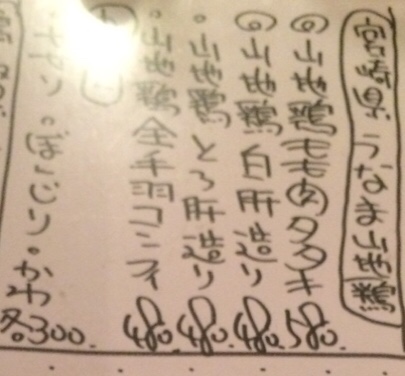 宮崎県 うなま山地鶏
◎山地鶏モモ肉タタキ 580.
◎山地鶏白肝造り 480.
・山地鶏とろ肝造り 480.
・山地鶏全手羽コンフィ 480.
ぼんじり・かわ 各300.